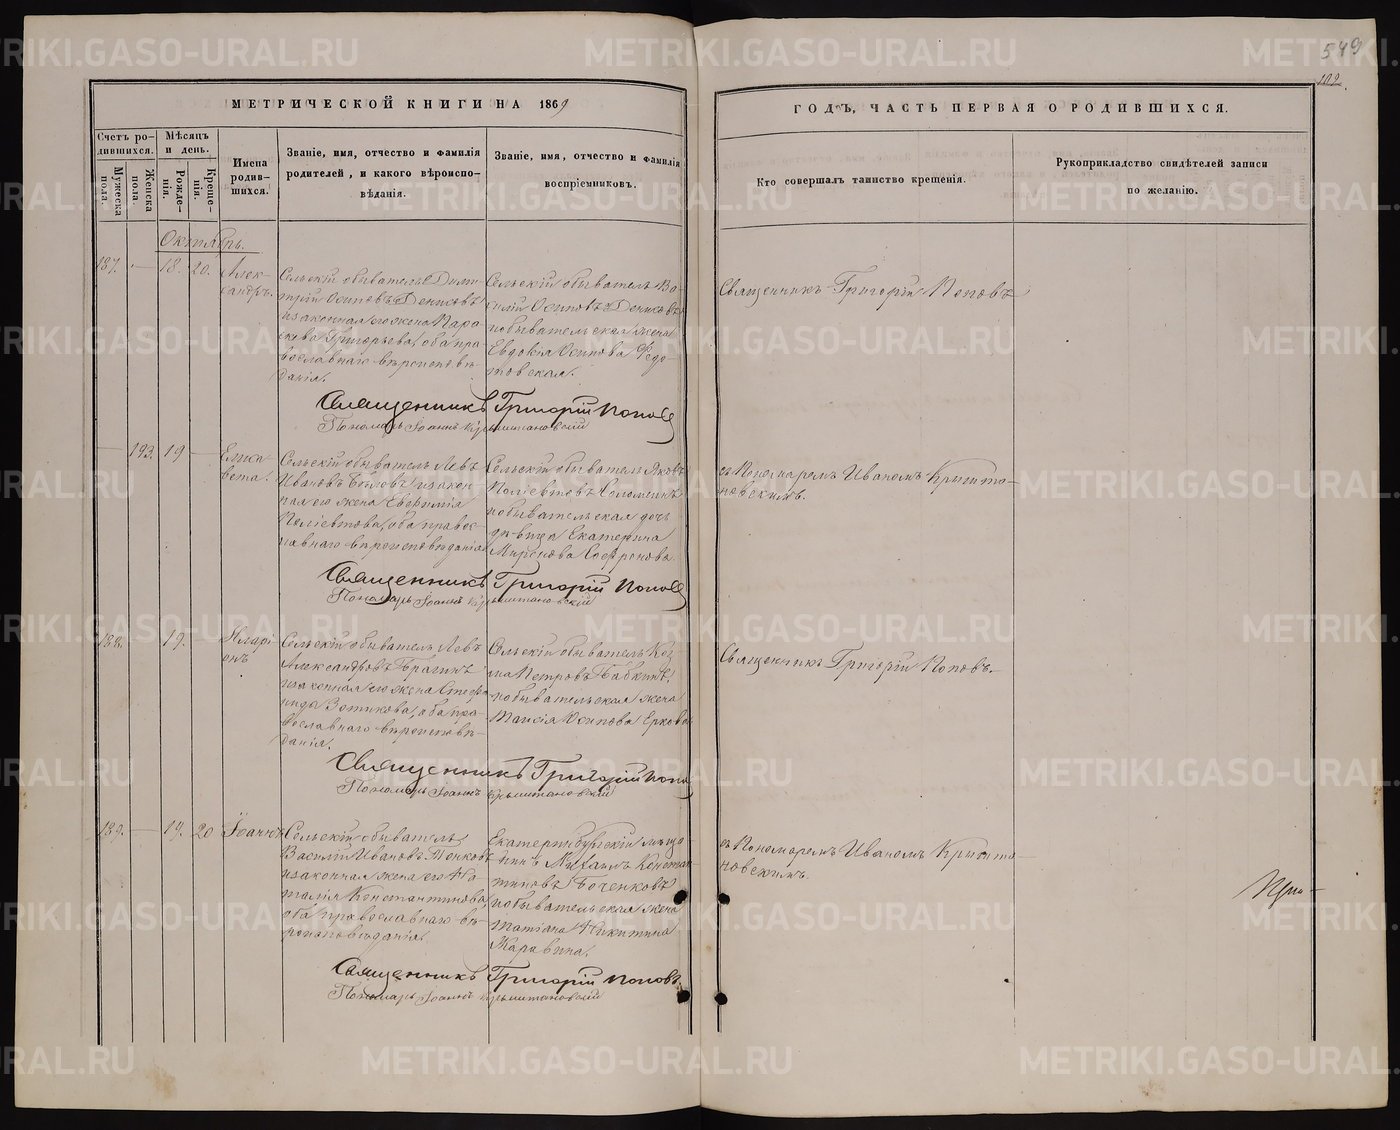 549
102.
МЕТРИЧЕСКОЙ КНИГИ НА 1869
ГОДЪ, ЧАСТЬ ПЕРВАЯ О РОДИВШИХСЯ.
Счетъ ро-
дившихся.
Мужеска пола.
Женска пола.
Мѣсяцъ
и день.
Рожде-
нія.
Креще-
нія.
Имена
родив-
шихся.
Званіе, имя, отчество и фамилія
родителей, и какого вѣроиспо-
вѣданія.
Званіе, имя, отчество и фамилія
воспріемниковъ.
Кто совершалъ таинство крещенія.
Рукоприкладство свидѣтелей записи
по желанію.
Октябрь.
187. — 18. 20.
Алек-
сандръ.
Сельскій обыватель Дими-
трій Осиповъ Денисовъ
и законная его жена Пара-
скева Григорьева, оба пра-
вославнаго вѣроисповѣ-
данія.
Сельскій обыватель Ва-
силій Осиповъ Денисовъ
и обывательская жена
Евдокія Осипова Федо-
товская.
Священникъ Григорій Поповъ
Священникъ Григорій Поповъ
Пономарь Іоаннъ Крыштановскій
— 193. 19 —
Елиса-
вета.
Сельскій обыватель Левъ
Ивановъ и закон-
ная его жена Евфимія
Поліевктова, оба правос-
лавнаго вѣроисповѣданія
Сельскій обыватель Яковъ
Поліевктовъ Соломинъ
и обывательская дочь
дѣвица Екатерина
Миронова Софронова.
съ Пономаремъ Иваномъ Крышта-
новскимъ.
Священникъ Григорій Поповъ
Пономарь Іоаннъ Крыштановскій
188. 19. —
Иларі-
онъ
Сельскій обыватель Левъ
Александровъ Брагинъ
и законная его жена Стефа-
нида Зотикова, оба пра-
вославнаго вѣроисповѣ-
данія.
Сельскій обыватель Коз-
ма Петровъ Бабкинъ,
и обывательская жена
Таисія Осипова
Священникъ Григорій Поповъ.
Священникъ Григорій Попо
Пономарь Іоаннъ Крыштановскій
189. — 19. 20
Іоаннъ
Сельскій обыватель
Василій Ивановъ
и законная жена его На-
талія Константинова,
оба православнаго вѣ-
роисповѣданія.
Екатеринбургскій мѣща-
нинъ Михаилъ Констан-
тиновъ Боченковъ
и обывательская жена
Татіана Никитина
Жаравина.
съ Пономаремъ Иваномъ Крышта-
новскимъ.
Священникъ Григорій Поповъ.
Пономарь Іоаннъ Крыштановскій
METRIKI.GASO-URAL.RU